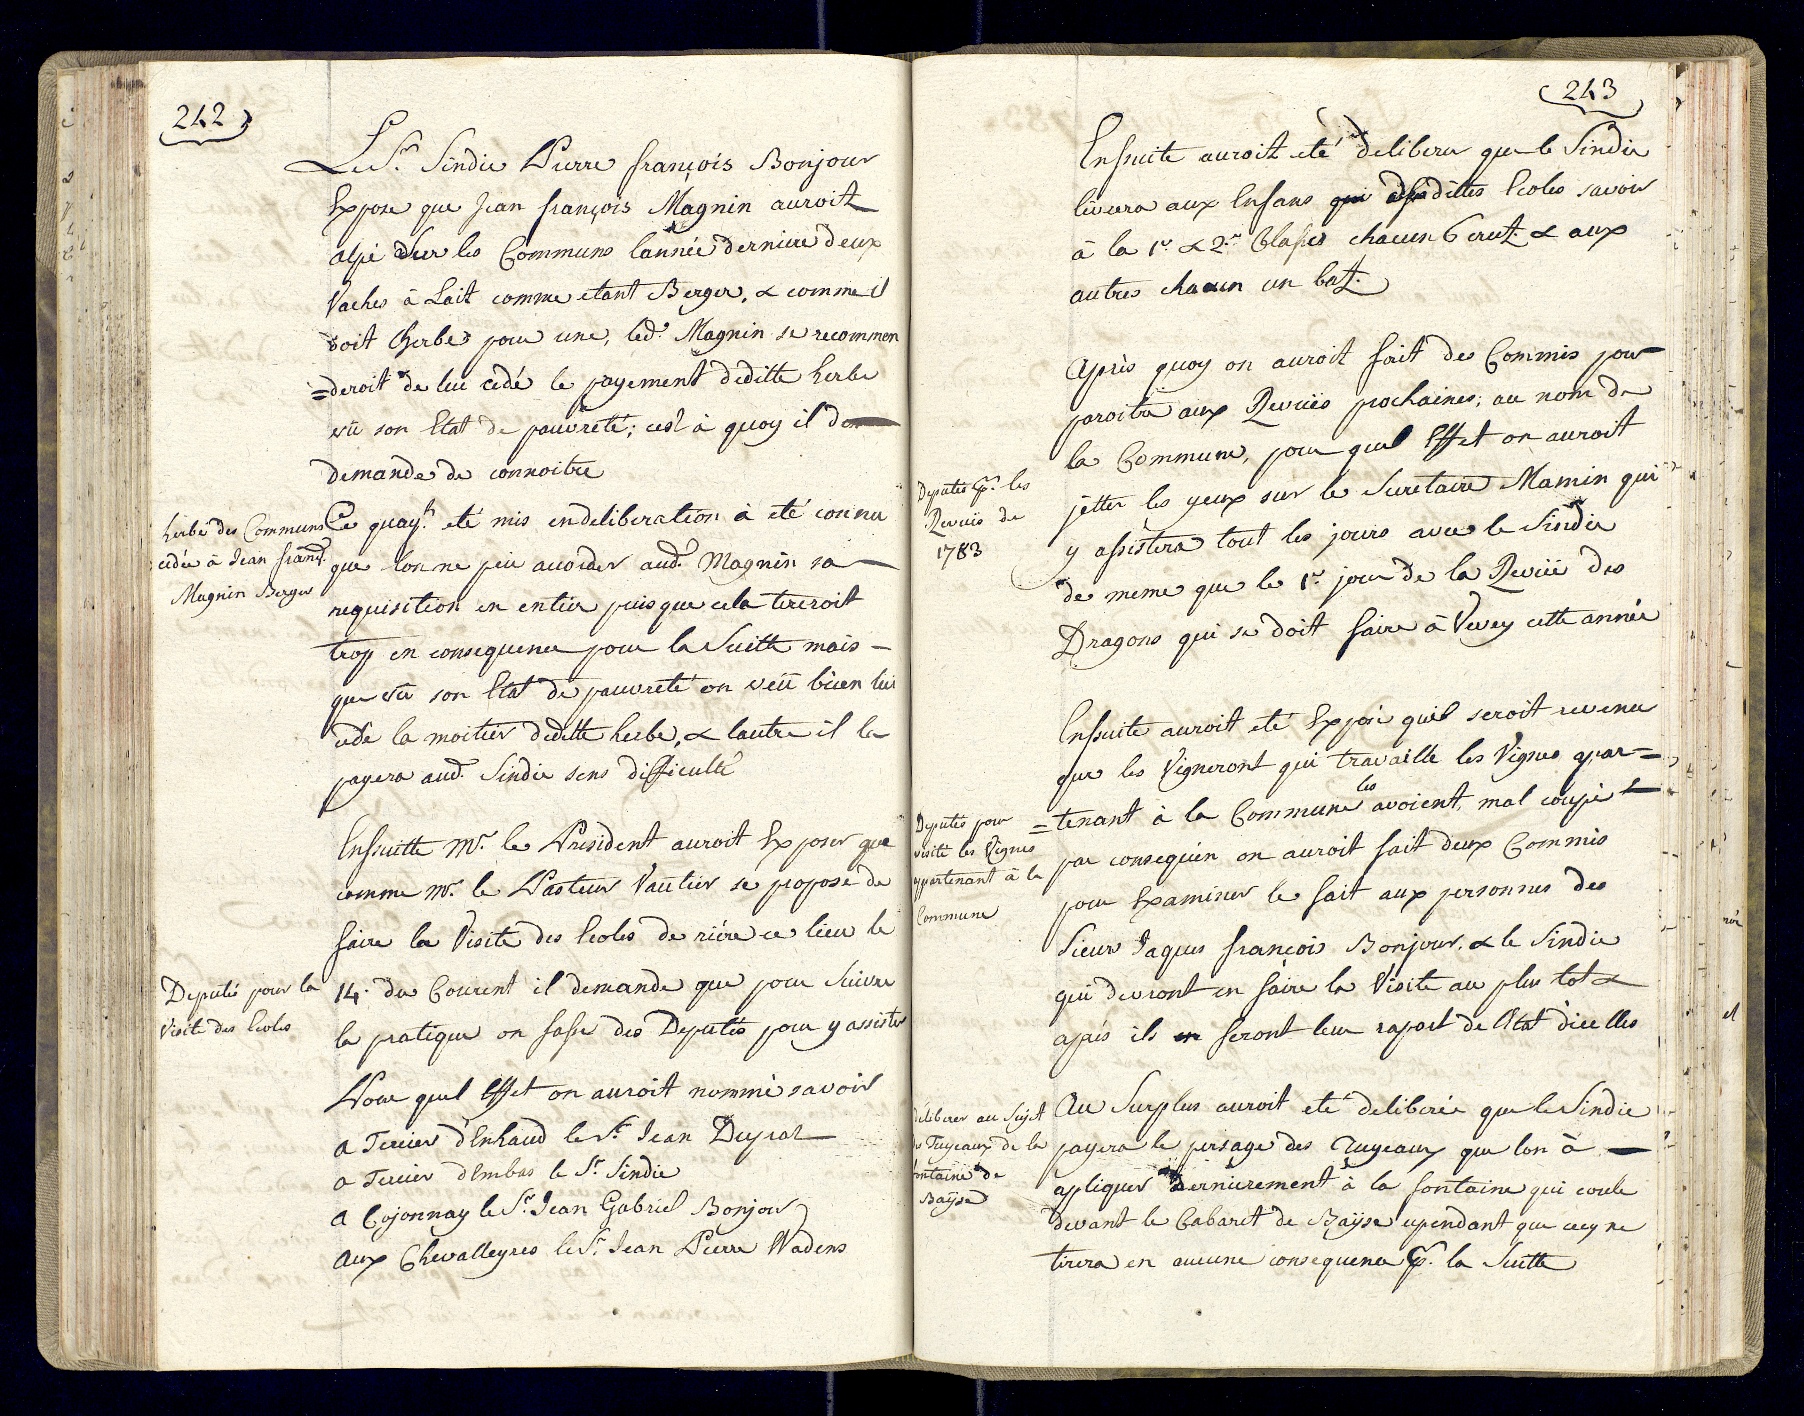 242
Le Sr. Sindic Pierre françois Bonjour
Expose que Jean françois Magnin auroit
alpé sur les Communs lannée derniere deux
Vaches à Lait comme etant Berger, & comme il
doit lherbe pour une, led. Magnin se recommen
=deroit de lui cedé le payement deditte herbe
vû son Etat de pauvreté; cest à quoy il de
demande de connoitre
herbe des Communs
cédée à Jean franç.
Magnin Berger
Ce quayt. eté mis endeliberation à eté connu
que lon ne peu accorder aud. Magnin sa
requisition en entier puis que cela tireroit
trop en consequence pour la Suitte mais
que vû son Etat de pauvreté on veü bien lui
cédé la moitier deditte herbe, & lautre il la
payera aud. Sindic sens difficulté
Ensuitte Mr. le President auroit Exposer que
comme Mr. le Pasteur Vautier se propose de
faire la Visite des Ecoles de riére ce lieu le
Deputés pour la
Visite des Ecoles
14. du Courent il demande que pour Suivre
la pratique on fasse des Deputés pour y assister
Pour quel Effet on auroit nommé savoir
a Tercier d'Enhaud le Sr. Jean Dupraz
a Tercier d'Embas le Sr. Sindic
a Cojonnay le Sr. Jean Gabriel Bonjour
aux Chevalleyres le Sr. Jean Pierre Wadens
243
Ensuite auroit eté deliberer que le Sindic
livrera aux Enfans desdittes Ecoles savoir
à la 1e. & 2e. Classes chacun 6 crutz. & aux
autres chacun un batz.
Après quoy on auroit fait des Commis pour
paroitre aux Revües prochaines; au nom de
la Commune, pour quel Effet on auroit
Deputés pr. les
Revües de
1783
jetter les yeux sur le Secretaire Mamin qui
y assistera tout les jours avec le Sindic
de meme que le 1er. jour de la Revüe des
Dragons qui se doit faire à Vevey cette année
Ensuite auroit eté Exposé quil seroit revenu
que les Vigneront qui travaille les Vignes apar=
=tenant à la Commune les avoient, mal coupé &
Deputés pour
visité les Vignes
appartenant à la
Commune
par consequen on auroit fait deux Commis
pour Examiner le fait aux personnes des
Sieur Jaques françois Bonjour, & le Sindic
qui devront en faire la Visite au plus tot &
après ils en feront leur raport de l'Etat d'icelles
déliberer au Sujet
des Tuyeaux de la
fontaine de
Baÿse
Au Surplus auroit eté deliberée que le Sindic
payera le persage des Tuyeaux que lon à
apliquer dernièrement à la fontaine qui coule
devant le Cabaret de Baÿse cependant que cecy ne
tirera en aucune consequence pr. la Suitte